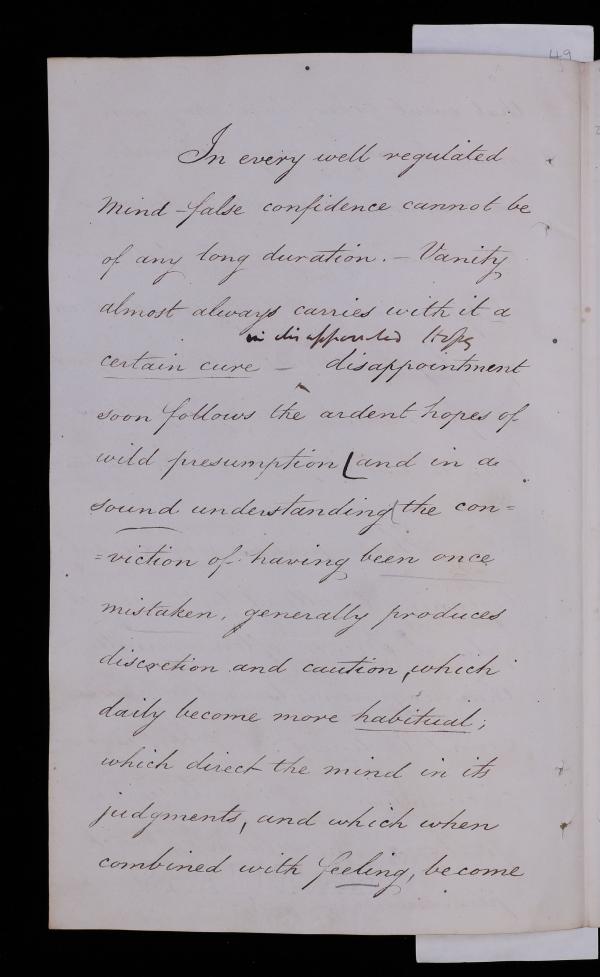 49
In every well regulated
mind - false confidence cannot be
of any long duration. - Vanity
almost always carries with it a
in disappointed Hope
certain cure - disappointment
soon follows the ardent hopes of
wild presumption (and in a
sound understanding (the con=
=viction of having been once
mistaken, generally produces
discretion and caution, which
daily become more habitual;
which direct the mind in its
judgments, and which when
combined with feeling, become